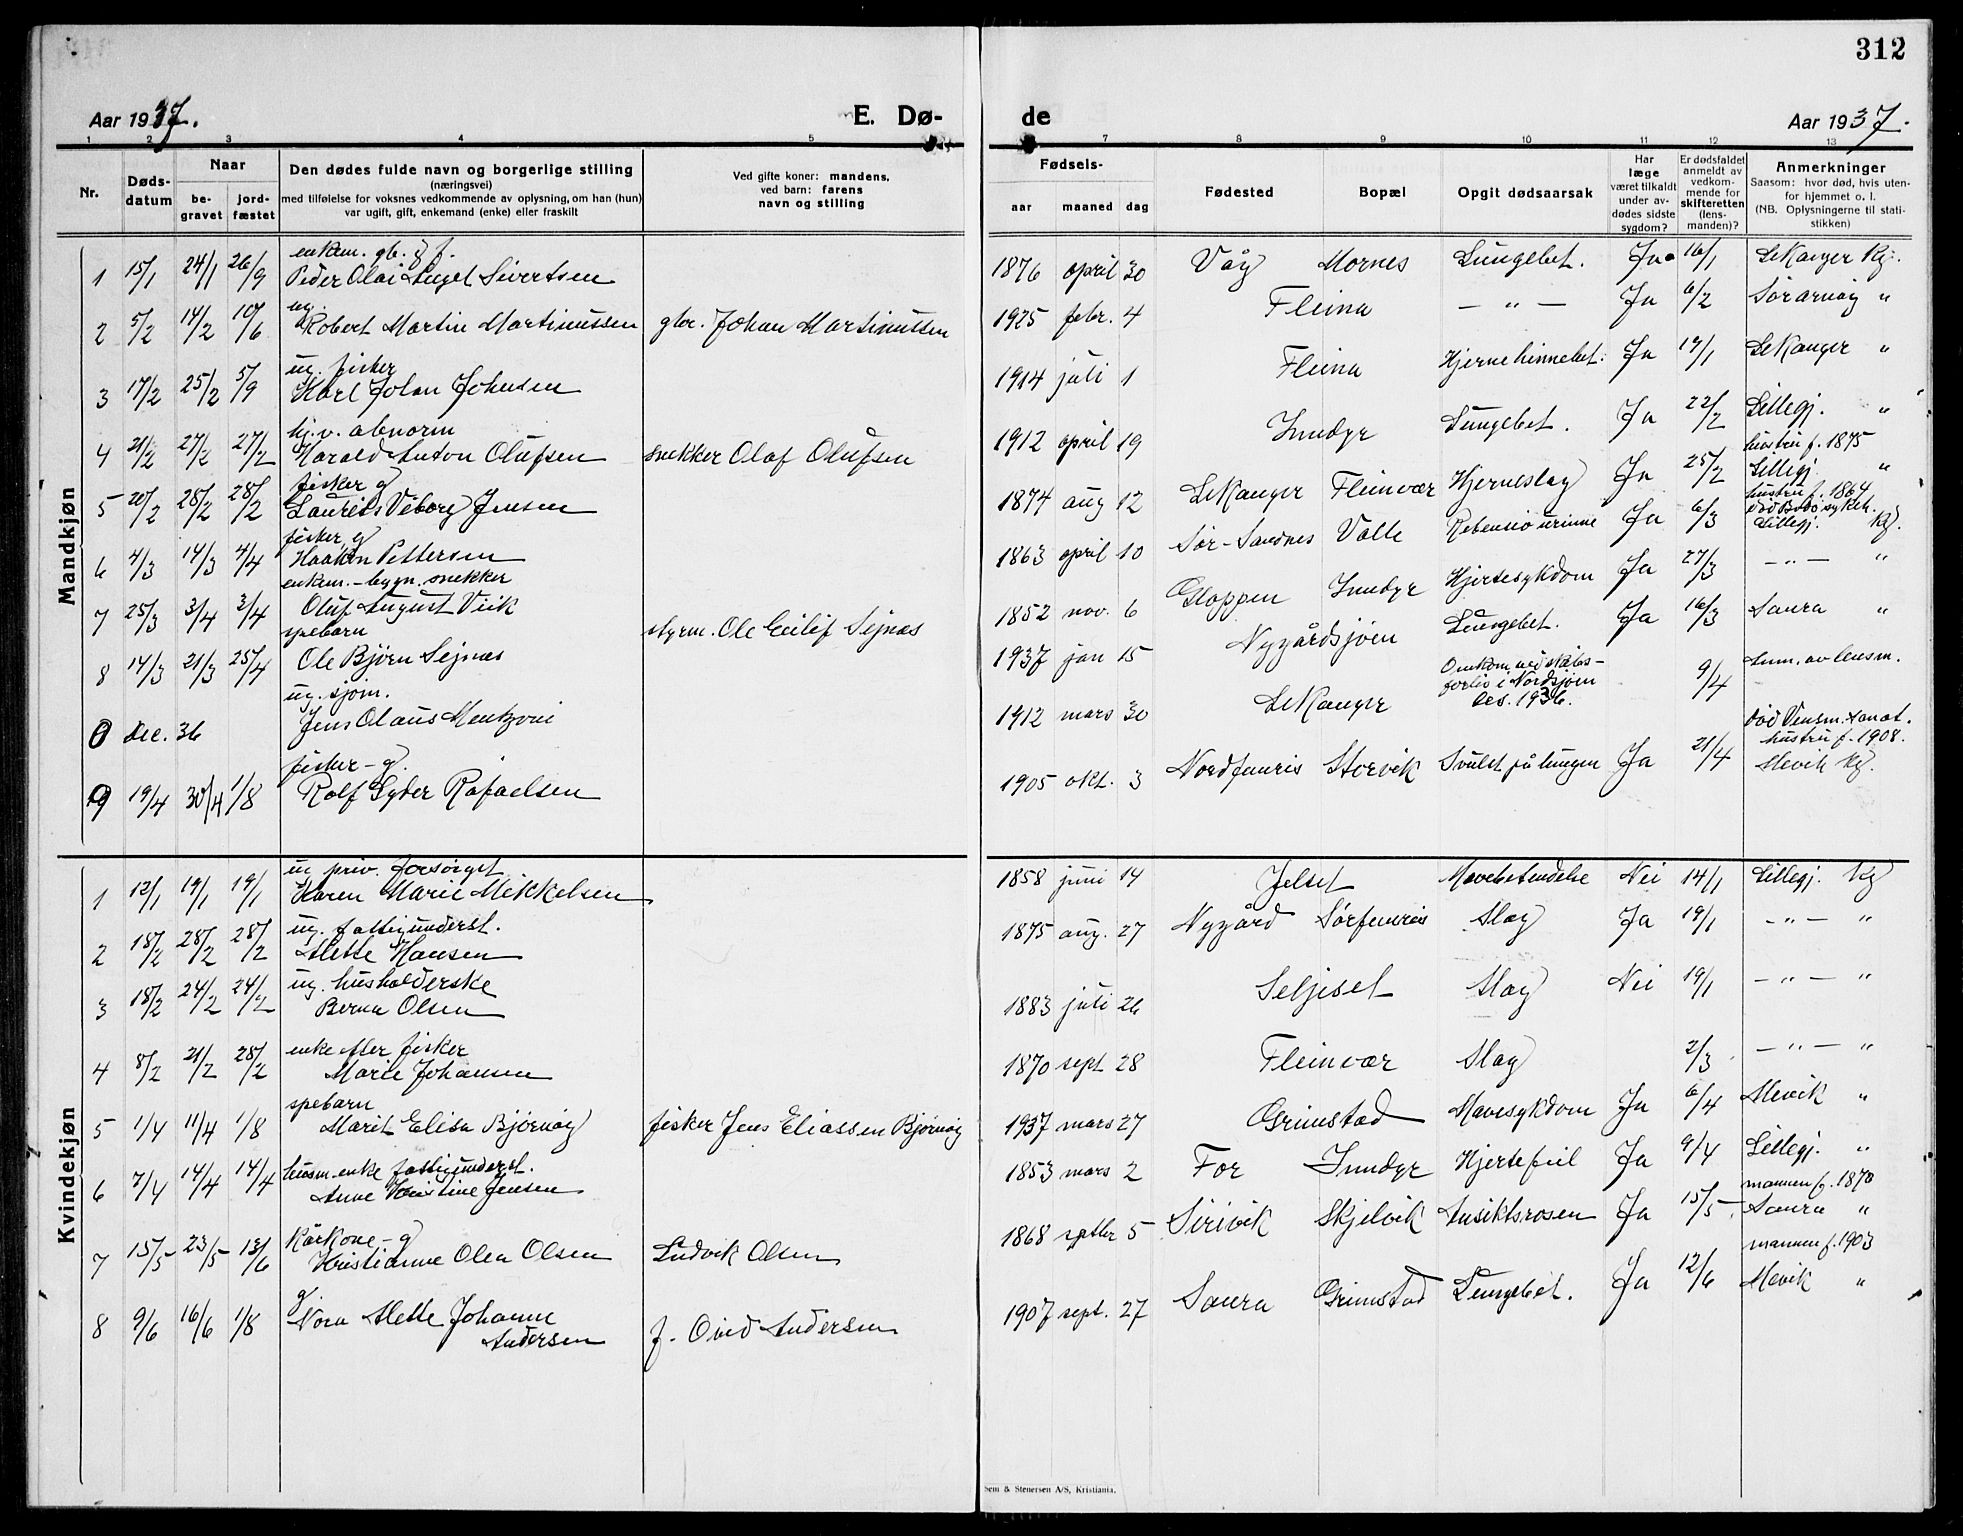 312
Aar 1937. E. Dø- de Aar 1937.
1 2 3 4 5 7 8 9 10 11 12 13
Nr.
Døds-
datum
Naar
be-
gravet
jord-
fæstet
Den dødes fulde navn og borgerlige stilling
(næringsvei)
med tilføielse for voksnes vedkommende av oplysning, om han (hun)
var ugift, gift, enkemand (enke) eller fraskilt
Ved gifte koner: mandens,
ved barn: farens
navn og stilling
Fødsels-
aar maaned dag
Fødested
Bopæl
Opgit dødsaarsak
Har
læge
været tilkaldt
under av-
dødes sidste
sygdom?
Er dødsfaldet
anmeldt av
vedkom-
mende for
skifteretten
(lens-
manden)?
Anmerkninger
Saasom: hvor død, hvis uten-
for hjemmet o. l.
(NB. Oplysningerne til stati-
stikken)
Mandkjøn
enkem. gb. & f.
1 15/1 24/1 26/9 Peder Olai Engel Sivertsen 1876 april 30 Våg Mornes Lungebet. Ja 16/1 Lekanger Kg.
ug.
2 5/2 14/2 10/6 Robert Martin Martinussen gbr. Johan Martinussen 1925 febr. 4 Fleina — " — Ja 6/2 Sørarnøy "
ug. fisker
3 17/2 25/2 5/9 Karl Johan Johnsen 1914 juli 1 Fleina Hjernehinnebet. Ja 19/1 Lekanger "
hj.v. abnorm
4 21/2 27/2 27/2 Harald Anton Olufsen snekker Olaf Olufsen 1912 april 19 Inndyr Lungebet. Ja 22/2 Lillegj. "
fisker g hustru f. 1875
5 20/2 28/2 28/2 Laurits Viborg Jensen 1874 aug 12 Lekanger Fleinvær Hjerneslag Ja 25/2 Lillegj. "
fisker g hustru f. 1864
død Bodø sykeh.
6 4/3 14/3 4/4 Haakon Pettersen 1863 april 10 Sør-Sandnes Valle Ja 6/3 Lillegj. Kg.
enkem. - bygn. snekker
7 25/3 3/4 3/4 Oluf August Viik 1852 nov. 6 Gloppen Inndyr Hjertesykdom Ja 27/3 — " — "
spebarn
8 14/3 21/3 25/4 Ole Bjørn Sejnæs styrm. Ole Eilif Sejnæs 1937 jan 15 Nygårdsjøen Lungebet. Ja 16/3 Saura "
ug. sjøm.
0 dec. 36 Jens Olaus Mentzoni 1912 mars 30 Lekanger Omkom ved skibs-
forlis i Nordsjøen
des. 1936. 9/4 Anm. av lensm.
fisker - g. død Vensm. sanat.
hustru f. 1908.
9 19/4 30/4 1/8 Rolf Syder Rafaelsen 1905 okt. 3 Nordfauris Storvik Svulst på lungen Ja 21/4 Mevik Kg.
Kvindekjøn
ug priv. forsørget
1 12/1 19/1 19/1 Karen Marie Mikkelsen 1858 juni 14 Jelset Mavebetendelse Nei 14/1 Lillegj. Kg
ug. fattigunderst.
2 18/2 28/2 28/2 Mette Hansen 1875 aug. 27 Nygård Sørfauris Slag Ja 19/1 — " — "
ug. husholderske
3 18/2 24/2 24/2 Berna Olsen 1883 juli 26 Seljeset Slag Nei 19/1 — " — "
enke etter fisker
4 8/2 21/2 28/2 Marie Johansen 1870 sept 28 Fleinvær Slag 2/3 — " — "
spebarn
5 1/4 11/4 1/8 Marit Elisa Bjørnøy fisker Jens Eliassen Bjørnøy 1937 mars 27 Grimstad Mavesykdom Ja 6/4 Mevik "
husm. enke fattigunderst.
6 7/4 14/4 14/4 Anne Kristine Jensen 1853 mars 2 For Inndyr Hjertefeil Ja 9/4 Lillegj. "
Kårkone - g mannen f. 1870
7 15/5 23/5 13/6 Kristianne Olea Olsen Ludvik Olsen 1868 septbr 5 Sirivik Skjelvik Ansiktsrosen Ja 15/5 Saura "
g. mannen f. 1903
8 9/6 16/6 1/8 Nora Mette Johanne
Andersen f. Oved Andersen 1907 sept. 27 Saura Grimstad Lungebet. Ja 12/6 Mevik "
Sem & Stenersen A/S, Kristiania.